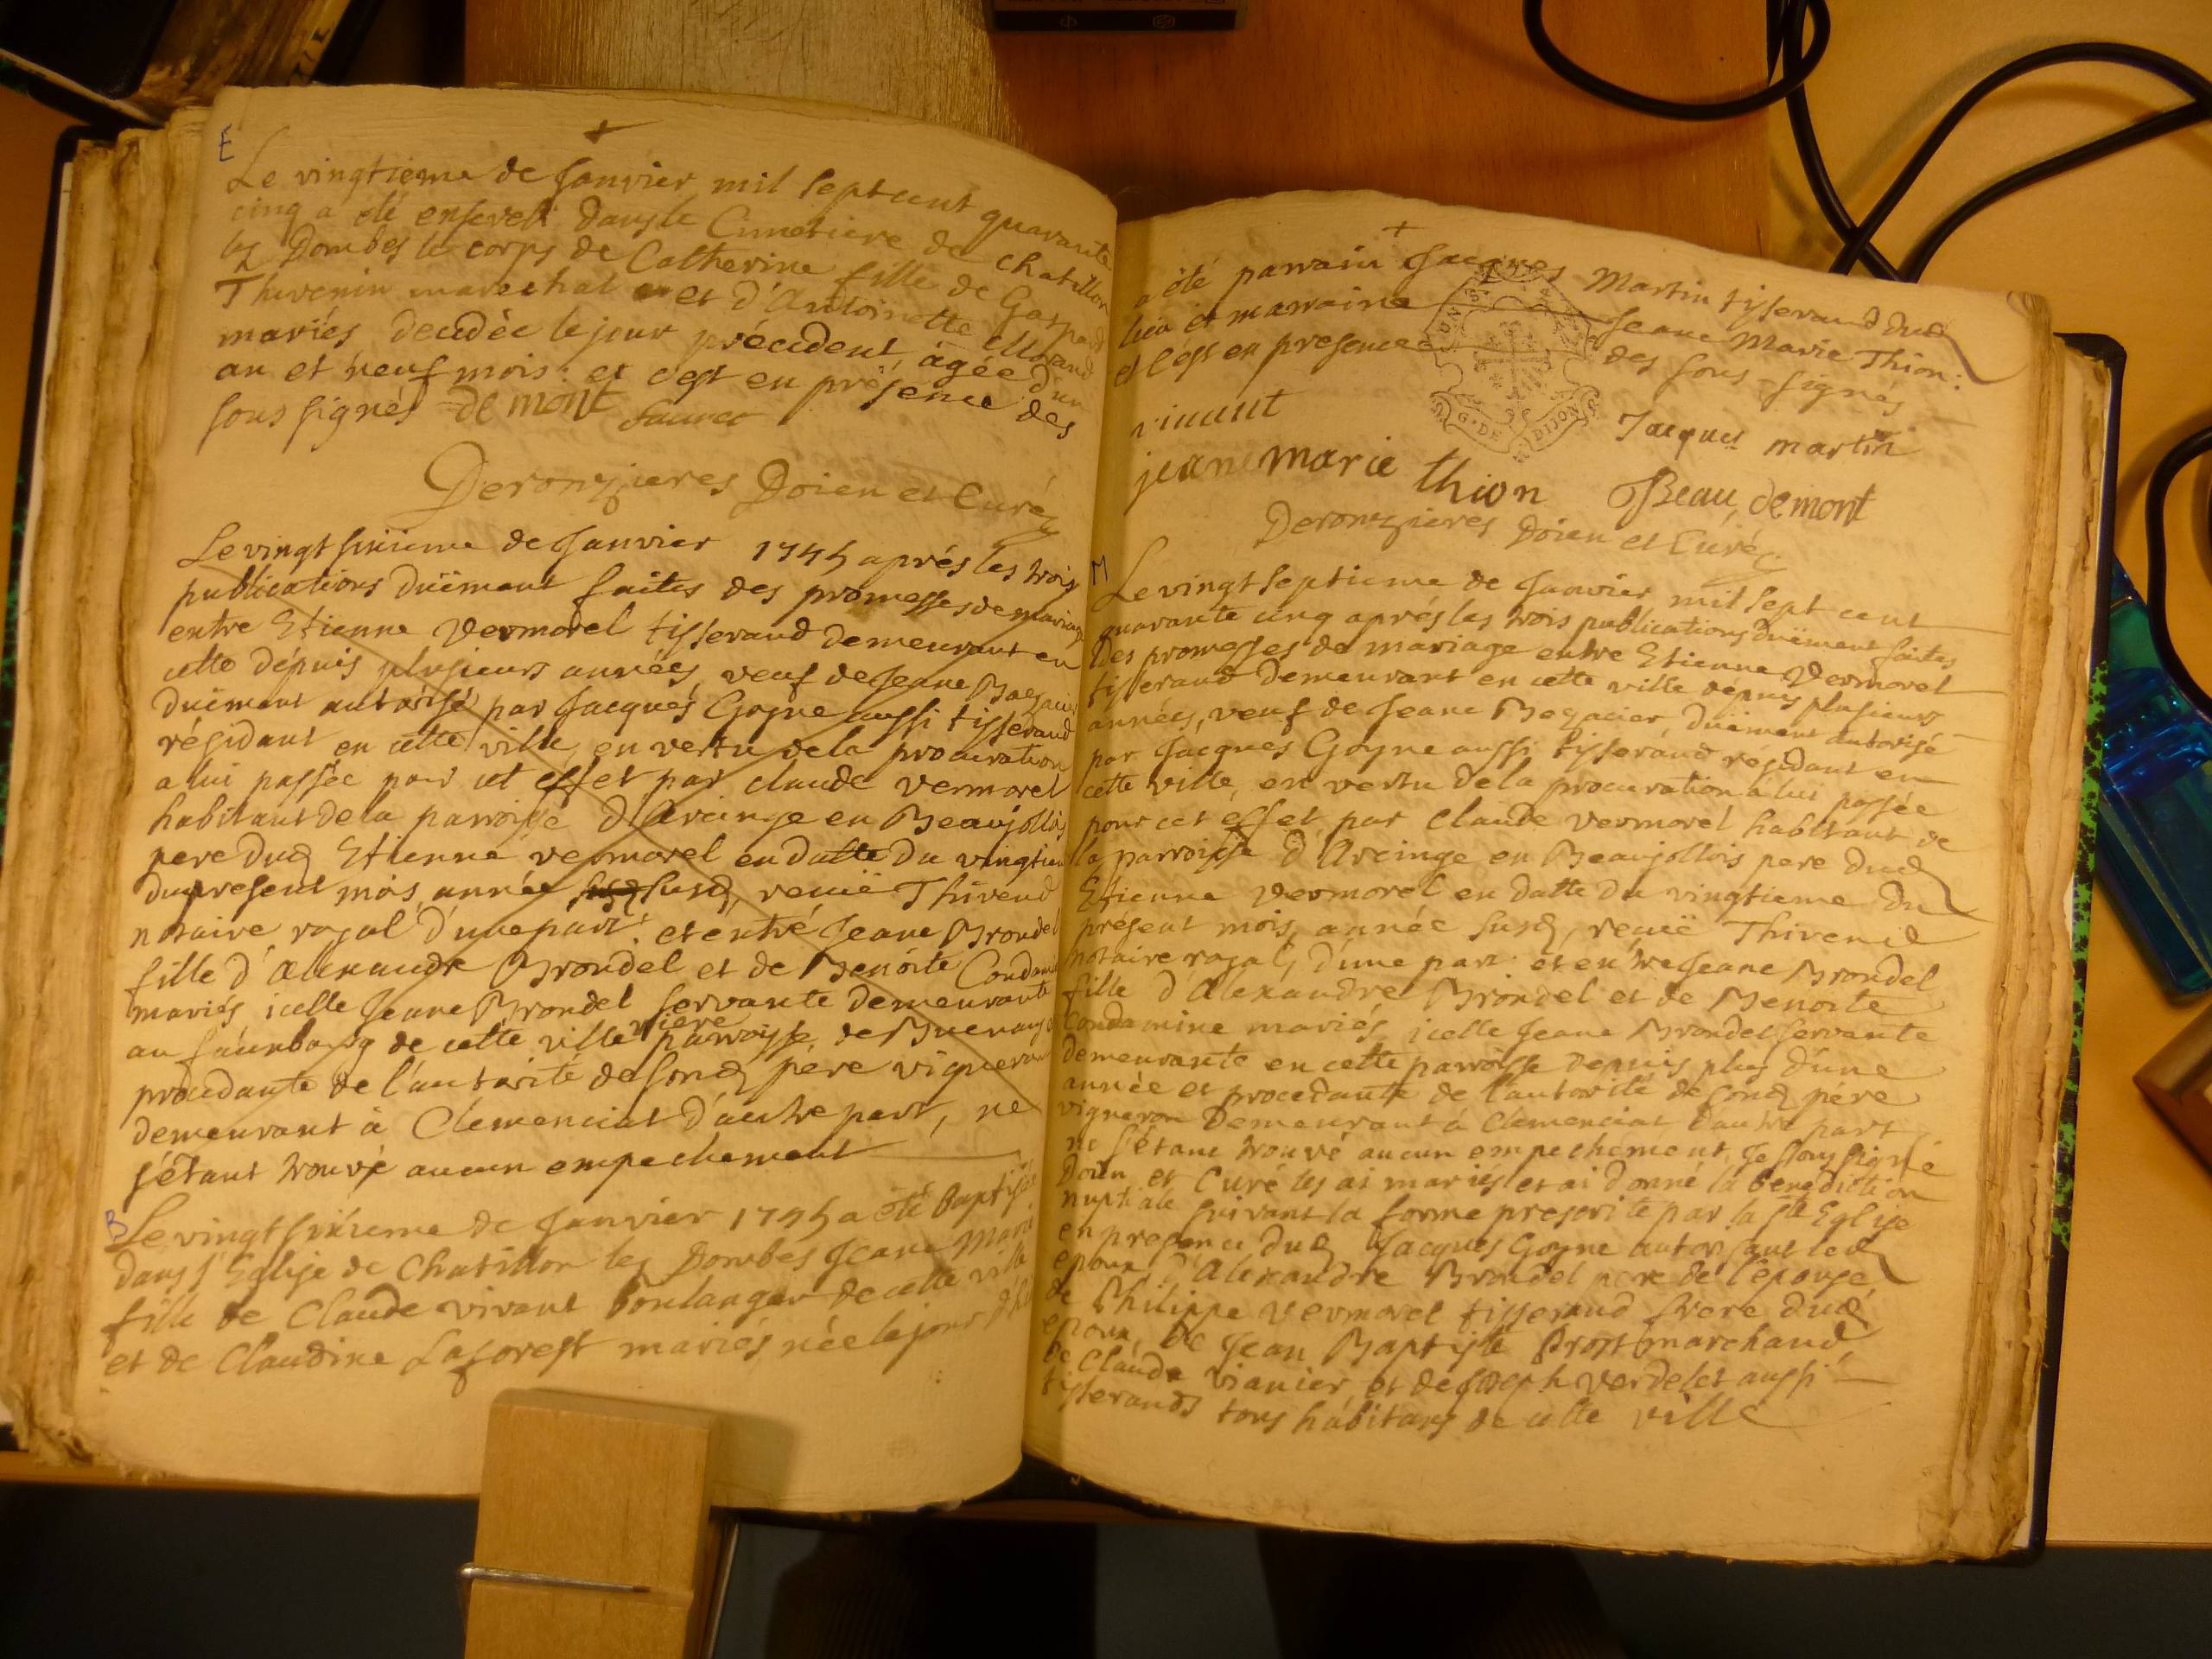 E
Le vingtieme de Janvier mil sept cent quarante
cinq a été enseveli dans le Cimetiere de chatillon
les Dombes le corps de Catherine fille de Gaspard
Thivenin marechal et d'Antoinette Morand
mariés decedée le jour précedent, agée d'un
an et neuf mois: et c'est en présence des
sous signés demont
Deronzieres Doien et Curé
Le vingt sixieme de Janvier 1745 après les trois
publications duëment faites des promesses de mariage
entre Etienne Vermorel tisserand demeurant en
cette dépuis plusieurs années, veuf de Jeane
duëment autorisé par Jacques Goyne aussi tisserand
résidant en cette ville, en vertu de la procuration
a lui passée pour cet effet par claude vermorel
habitant de la parroisse d'Arcinge en Beaujollois
pere dud Etienne vermorel en datte du vingtieme
du present mois, année susd, recuë Thivend
notaire royal d'une part: et entré Jeane Brondel
fille d'Alexandre Brondel et de Benoite Condamine
mariés, icelle Jeane Brondel servante demeurante
au faurbourg de cette ville parroisse de Buenans
procedante de l'autorité de sond pére vigneron
demeurant à Clemenciat d'autre part, ne
s'étant trouvé aucun empechement
B
Le vingt sixieme de Janvier 1745 a été baptisée
dans l'Eglise de Chatillon les Dombes Jeane Marie
fille de Claude vivant boulanger de cette ville
et de Claudine Laforest mariés, née le jour d'hier
a été parrain Jacques Martin tisserand dud
lieu et marraine Jeane Marie Thion:
et c'est en presence des sous-signés
G. DE DIJON
vivant Jacques martin
jeanne marie thion Beau demont
Deronzieres Doien et Curé
M
Le vingt septieme de Janvier mil sept cent
quarante cinq après les trois publications duëment faites
des promesses de mariage entre Etienne Vermorel
tisserand demeurant en cette ville dépuis plusieurs
années, veuf de Jeane Begacier, duëment autorisé
par Jacques Goyne aussi tisserand résidant en
cette ville, en vertu de la procuration a lui passée
pour cet effet par Claude vermorel habitant de
la parroisse d'Arcinge en Beaujollois pere dud
Etienne Vermorel en datte du vingtieme du
présent mois, année susd, recuë Thivend
notaire royal, d'une part: et entre Jeane Brondel
fille d'Alexandre Brondel et de Benoite
Condamine mariés, icelle Jeane Brondel servante
demeurante en cette parroisse depuis plus d'une
année et procedante de l'autorité de sond pére
vigneron demeurant à Clemenciat d'autre part
ne s'étant trouvé aucun empechement, Je soussigné
Doien et Curé les ai mariés et ai donné la benediction
nuptiale suivant la forme prescrite par la ste Eglise
en presence dud Jacques Goyne autorisant led
epoux, d'Alexandre Brondel pere de l'épouse
de Philippe Vermorel tisserand frere dud
epoux, de Jean Baptiste Prost marchand,
de Claude vianier, et de Joseph verdelet aussi
tisserands tous habitans de cette ville